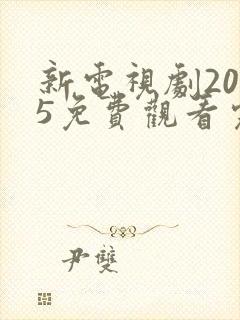 新電視劇20
5免費觀看
尹雙